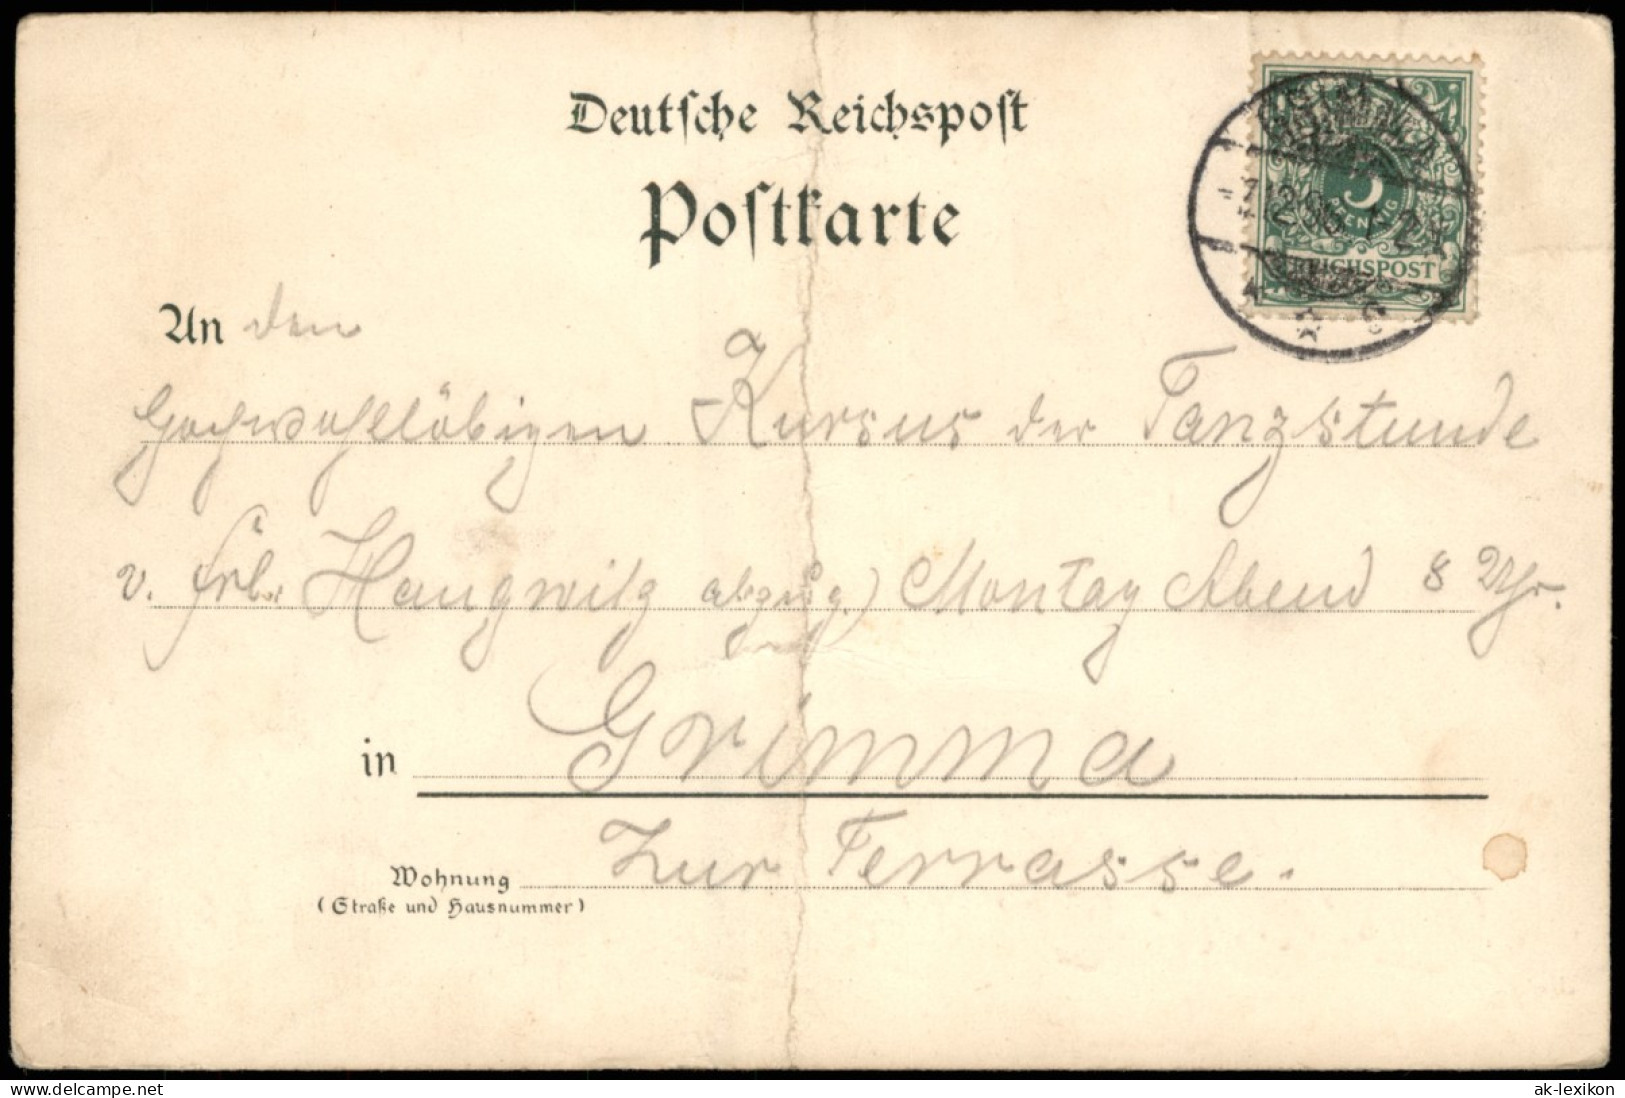 Deutsche Reichspost
Postkarte
5
PFENNIG
REICHSPOST
An den
Hochwohllöbigen Kursus der Tanzstunde
v. Frl. Haugwitz abzug.) Montag Abend 8 Uhr.
in Grimma
Wohnung Zur Terrasse.
(Straße und Hausnummer)
www.delcampe.net
ak-lexikon